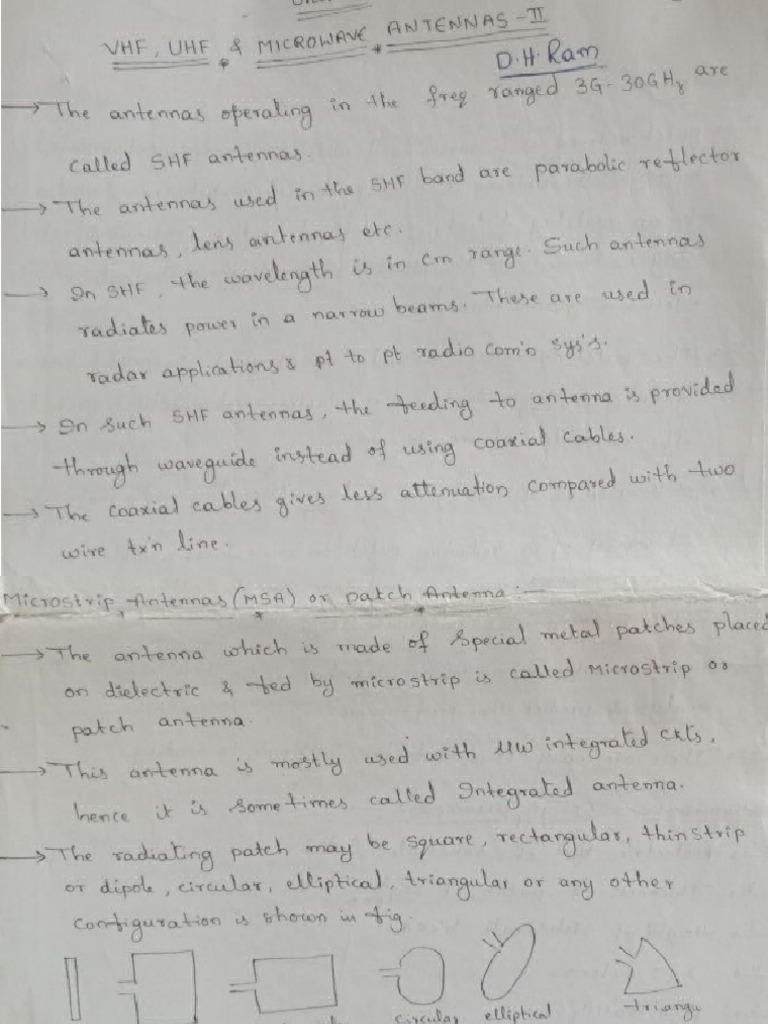 VHF, UHF & MICROWAVE ANTENNAS - II
D.H. Ram
→ The antennas operating in the freq ranged 3G-30GHz are
called SHF antennas.
→ The antennas used in the SHF band are parabolic reflector
antennas, lens antennas etc.
→ In SHF, the wavelength is in cm range. Such antennas
radiates power in a narrow beams. These are used in
radar applications & pt to pt radio com'n sys's.
→ In such SHF antennas, the feeding to antenna is provided
through waveguide instead of using coaxial cables.
→ The coaxial cables gives less attenuation compared with two
wire tx'n line.
Microstrip Antennas (MSA) or patch Antenna :-
→ The antenna which is made of special metal patches placed
on dielectric & fed by microstrip is called Microstrip or
patch antenna.
→ This antenna is mostly used with μw integrated ckts,
hence it is sometimes called Integrated antenna.
→ The radiating patch may be square, rectangular, thin strip
or dipole, circular, elliptical, triangular or any other
configuration is shown in fig.
circular elliptical triangu